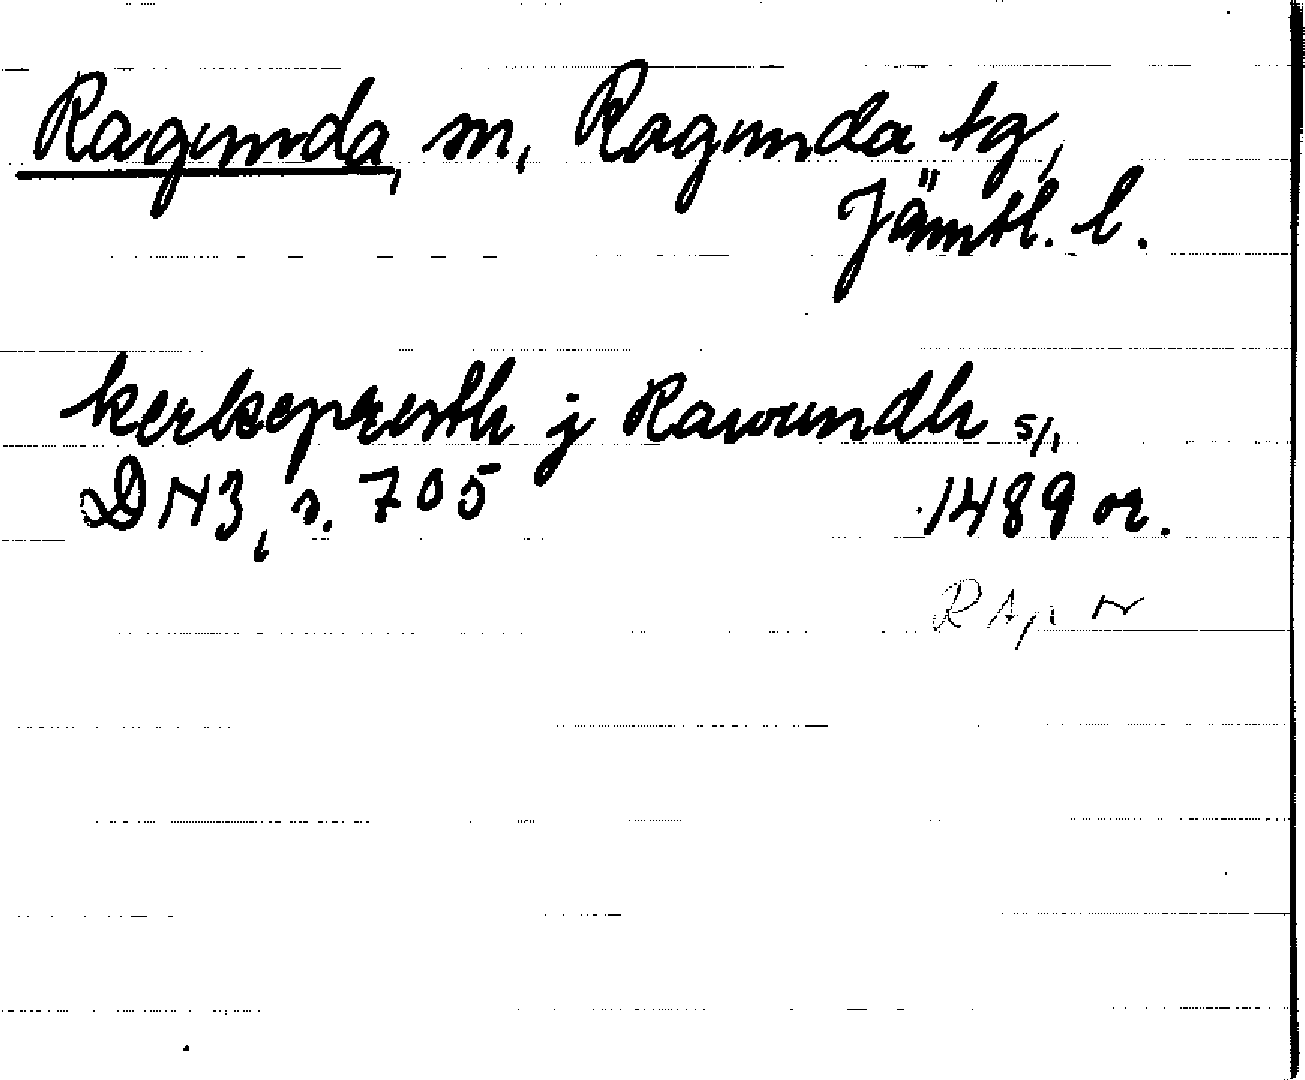 Ragunda, sn, Ragunda tg,
Jämtl. l.
kerkepresth j Rawundh 5/1
DN 3, s. 705 1489 or.